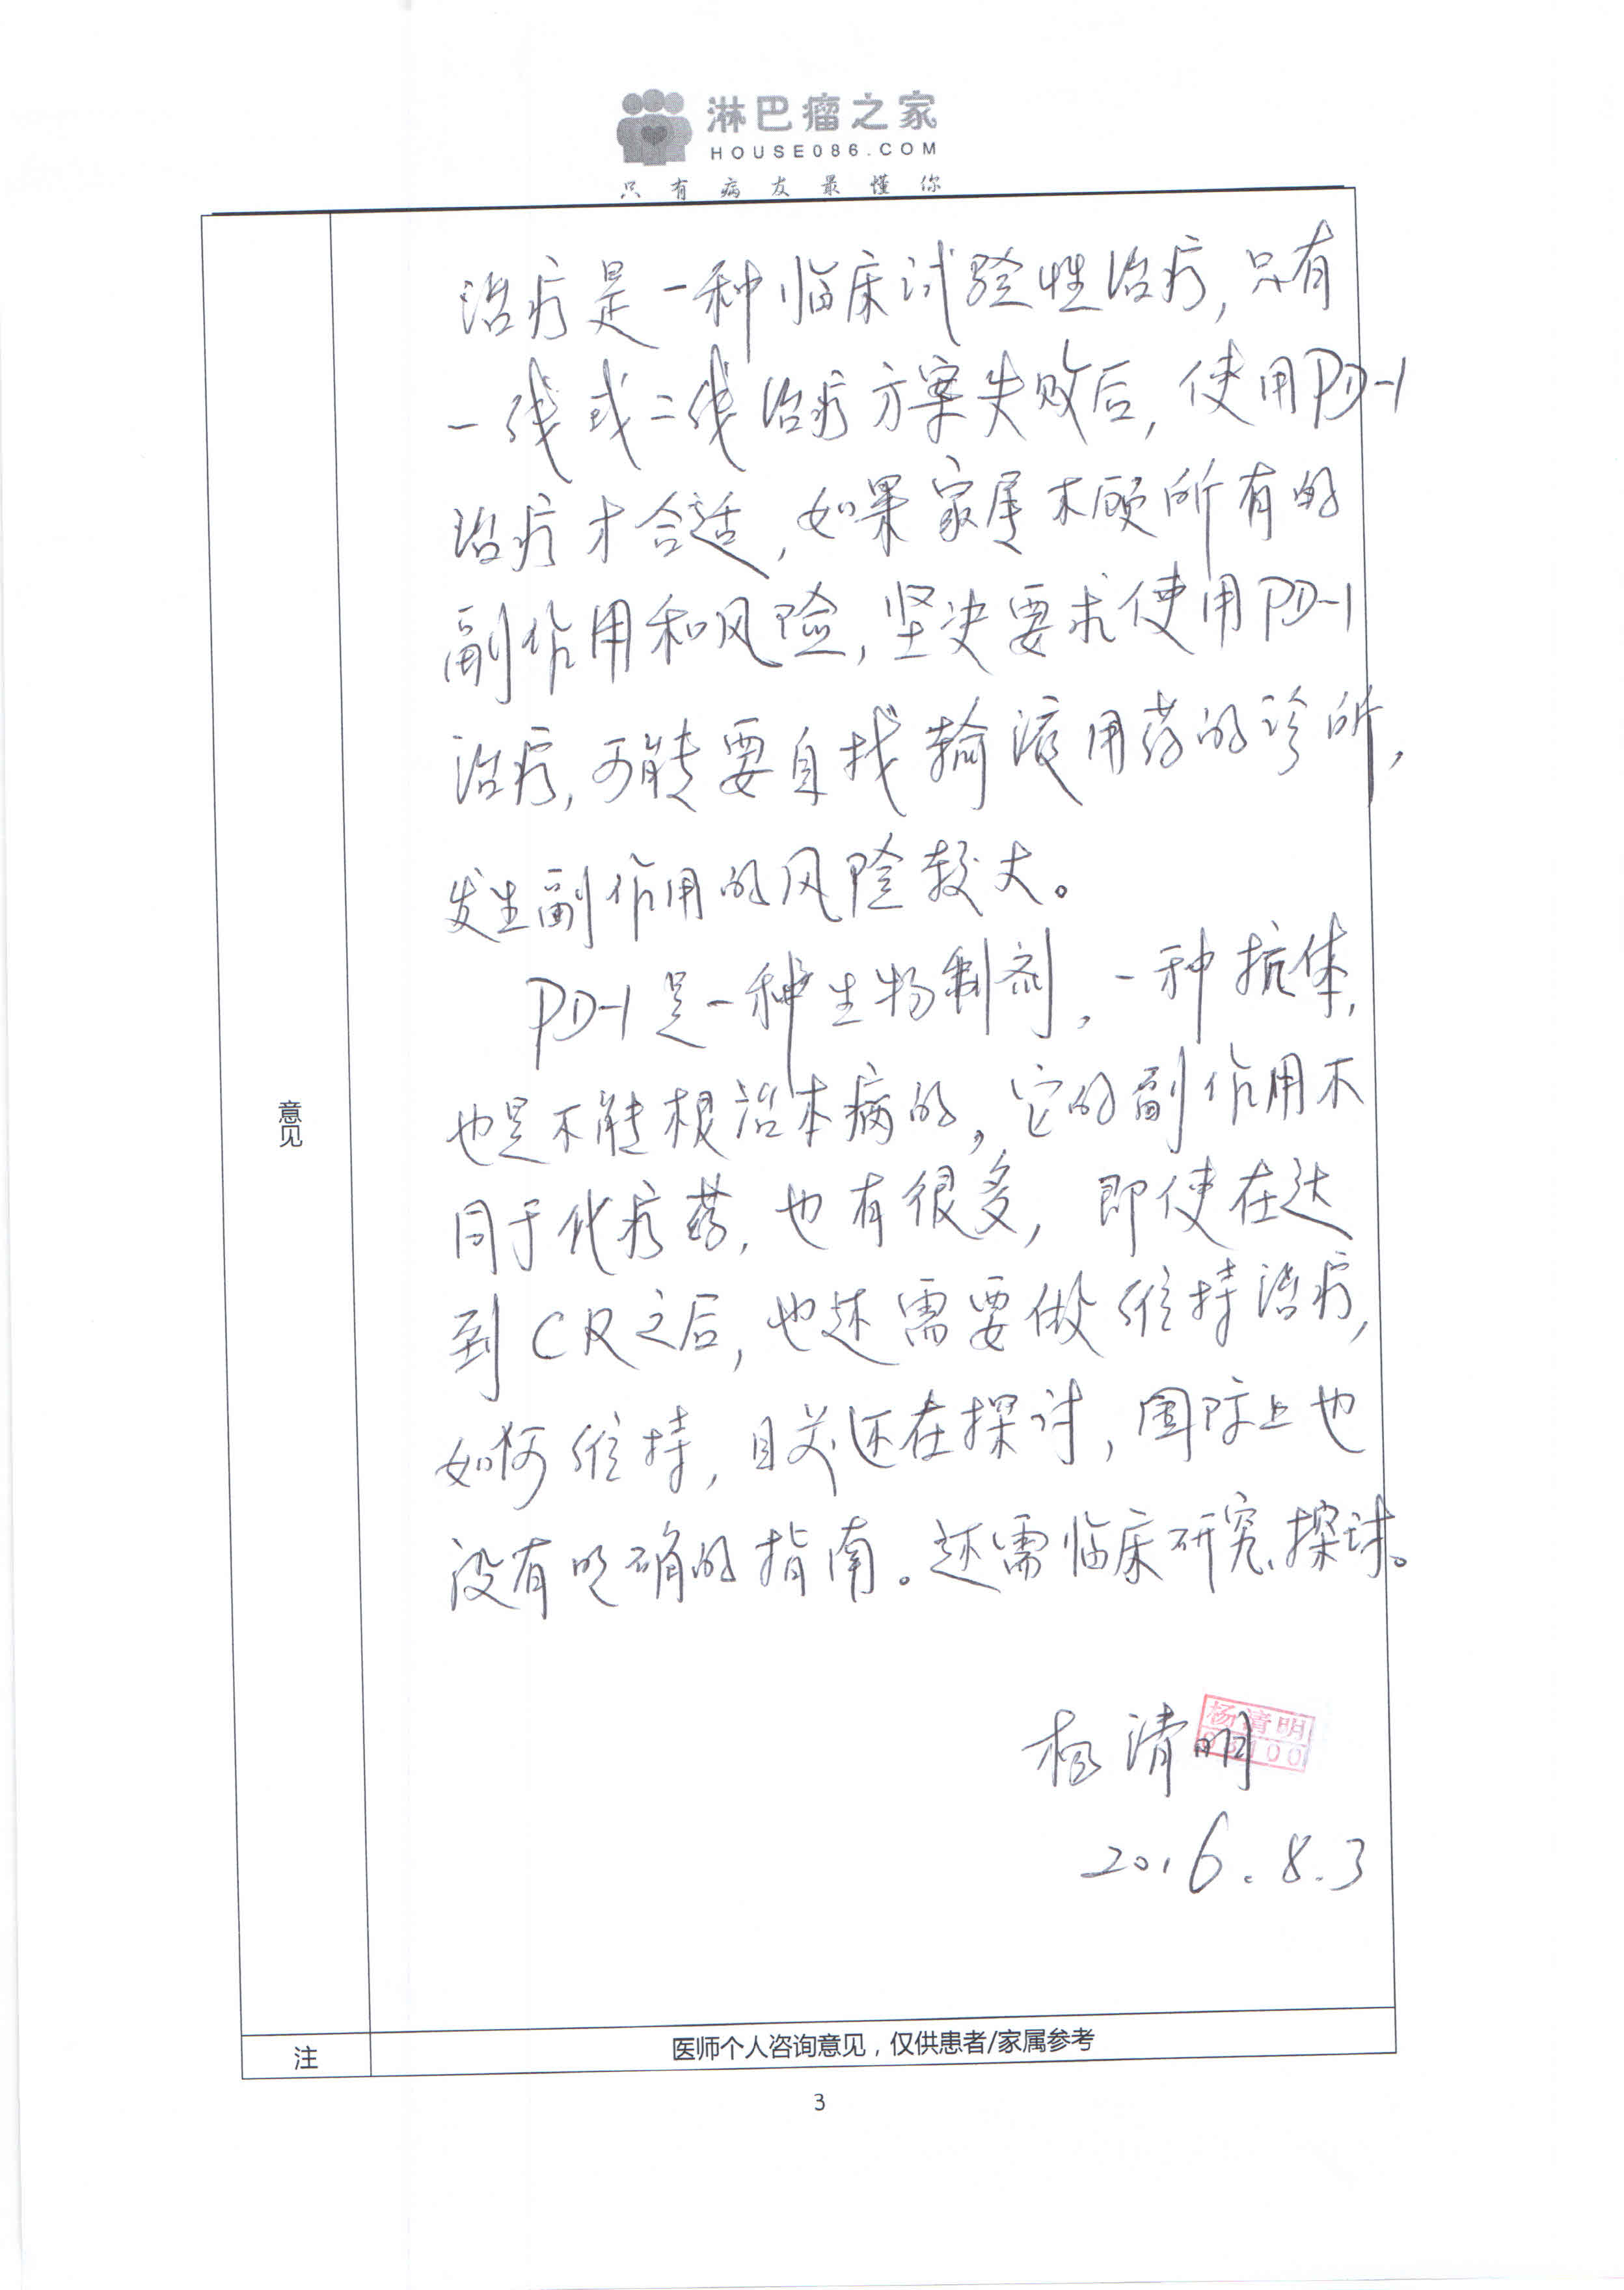 淋巴瘤之家
HOUSE086.COM
只有病友最懂你
治疗是一种临床试验性治疗，只有
一线或二线治疗方案失败后，使用PD-1
治疗才合适，如果家属不顾所有的
副作用和风险，坚决要求使用PD-1
治疗，可能要自找输液用药的诊所，
发生副作用的风险较大。
PD-1是一种生物制剂，一种抗体，
也是不能根治本病的，它的副作用不
同于化疗药，也有很多，即使在达
到CR之后，也还需要做维持治疗，
如何维持，目前还在探讨，国际上也
没有明确的指南。还需临床研究、探讨。
意见
杨清明
杨清明
2016.8.3
注
医师个人咨询意见，仅供患者/家属参考
3